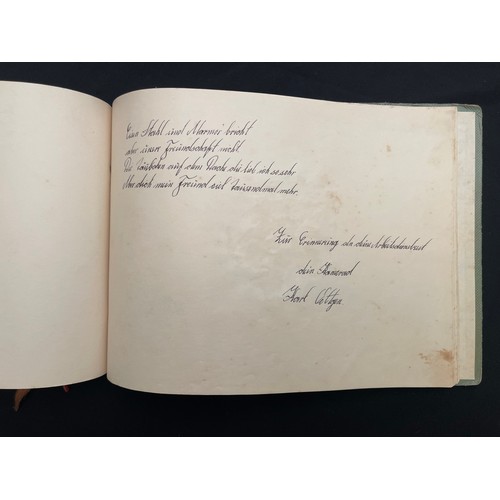 Eisen Stahl und Marmor bricht
aber unsere Freundschaft nicht
Die auf dem die lieb ich so sehr
Aber dich mein Freund viel tausendmal mehr.
Zur Erinnerung an dein Arbeitsdienstzeit
dein Kamerad
Karl